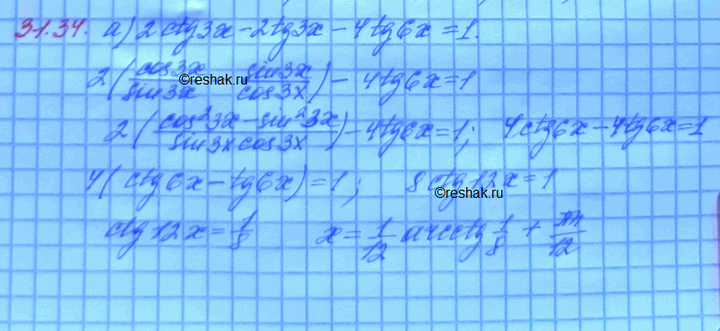 31.34. а) 2ctg3x - 2tg3x - 4tg6x = 1.
2(cos3x/sin3x - sin3x/cos3x) - 4tg6x = 1
©reshak.ru
2(cos²3x - sin²3x/sin3x cos3x) - 4tg6x = 1; 4ctg6x - 4tg6x = 1
4(ctg6x - tg6x) = 1; 8ctg12x = 1
©reshak.ru
ctg12x = 1/8 x = 1/12 arcctg 1/8 + πn/12